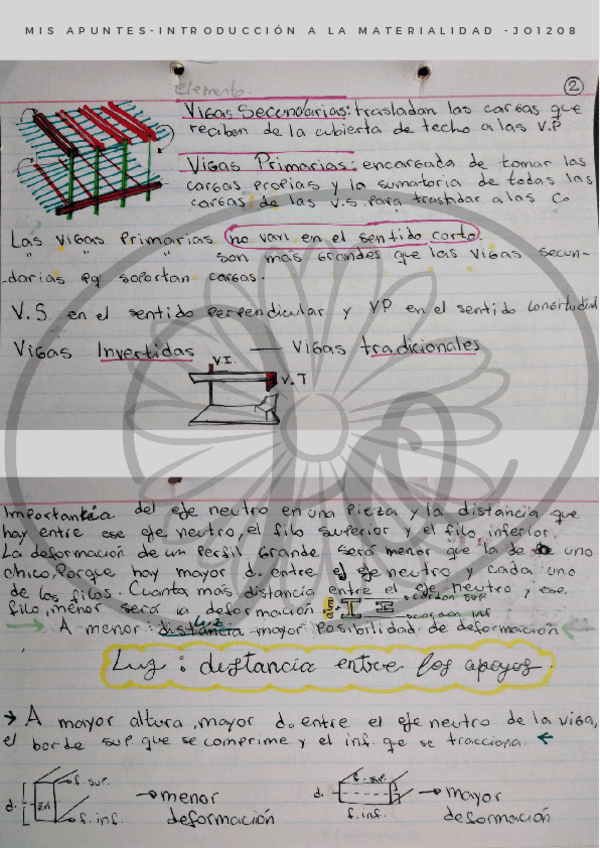 MIS APUNTES-INTRODUCCIÓN A LA MATERIALIDAD -JO1208
Elemento.
2
Vigas Secundarias: trasladan las cargas que
reciben de la cubierta de techo a las V.P
Vigas Primarias: encargada de tomar las
cargas propias y la sumatoria de todas las
cargas de las V.S para trasladar a las Co
Las vigas Primarias no van en el sentido corto.
" " " son más grandes que las vigas secun-
darias pq soportan cargas.
V.S en el sentido perpendicular y VP en el sentido longitudinal
Vigas Invertidas — Vigas tradicionales
V.I.
V.T
Importancia del eje neutro en una pieza y la distancia que
hay entre ese eje neutro, el filo superior y el filo inferior.
La deformación de un perfil grande será menor que la de uno
chico, Porque hay mayor d. entre el eje neutro y cada uno
de los filos. Cuanta más distancia entre el eje neutro y ese
filo, menor será la deformación
cordon sup
cordon inf
A menor distancia luz mayor posibilidad de deformación
Luz: distancia entre los apoyos.
→ A mayor altura, mayor d. entre el eje neutro de la viga,
el borde sup que se comprime y el inf. qe se tracciona ←
d. f. sup. → menor
f. inf. deformación
d. f. sup. → mayor
f. inf. deformación